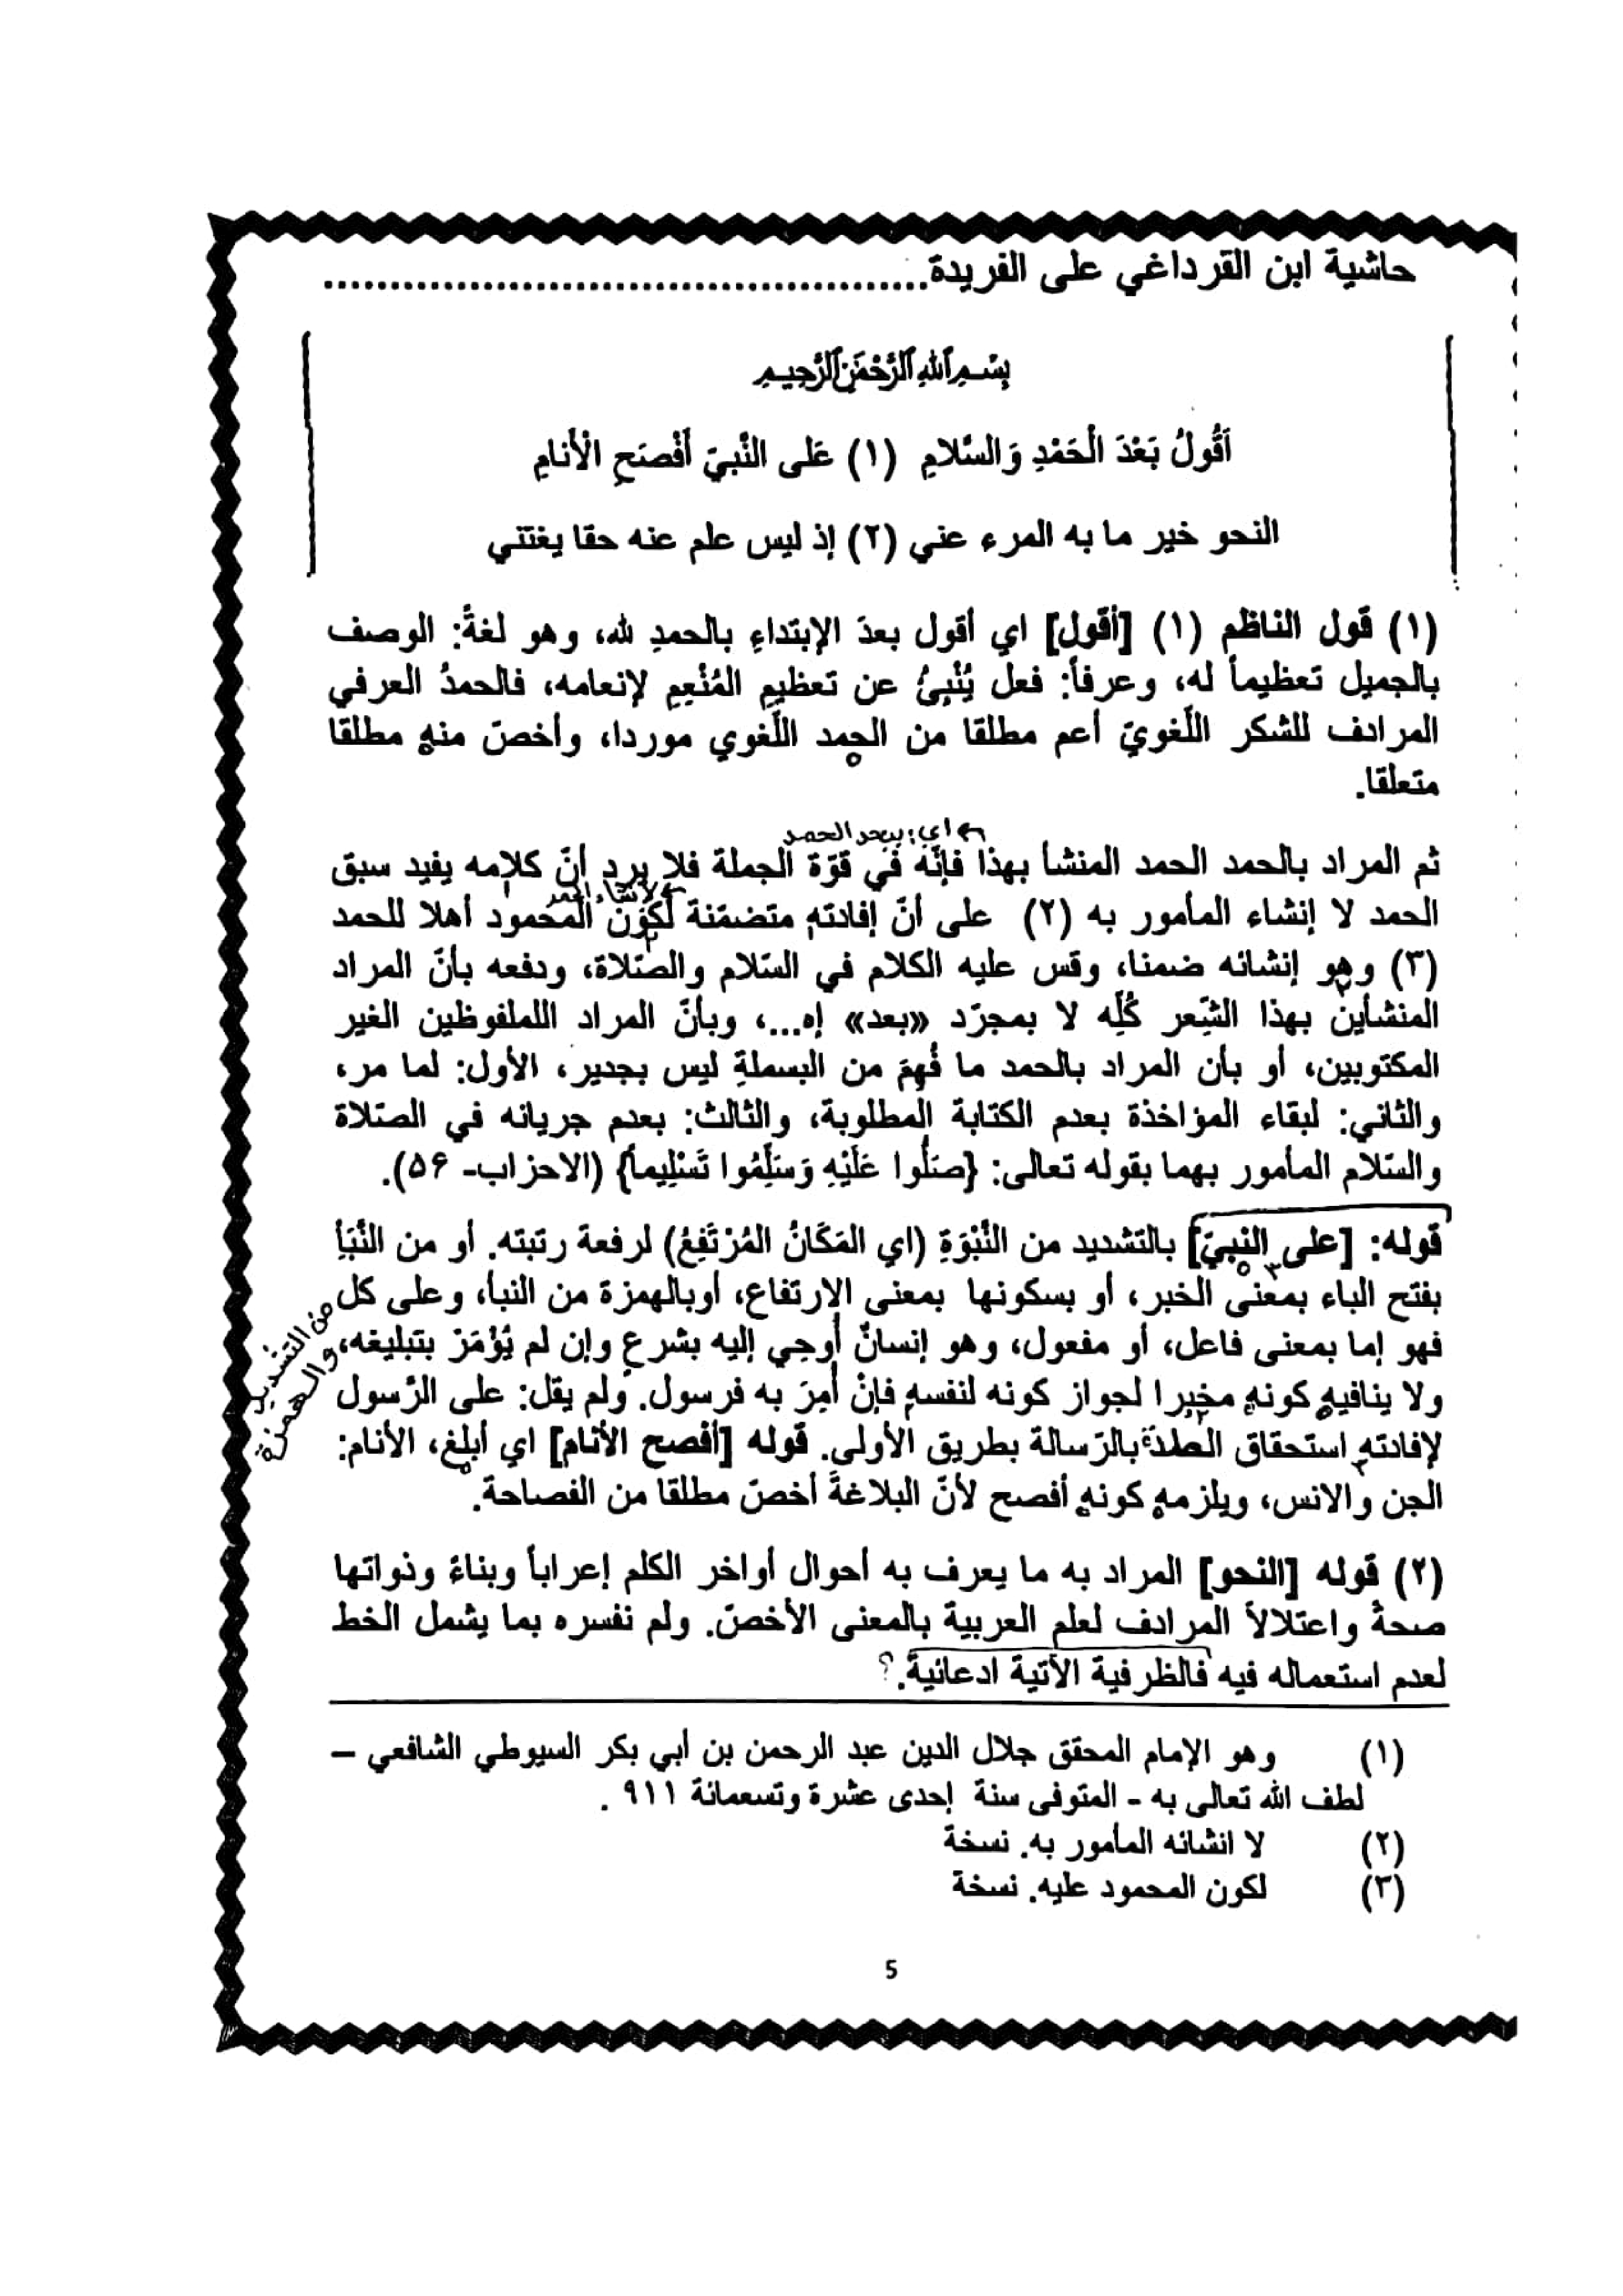 حاشية ابن القرداغي على الفريدة................................................
بِسْمِ اللهِ الرَّحْمٰنِ الرَّحِيمِ
أَقُولُ بَعْدَ الْحَمْدِ وَالسَّلامِ (١) عَلى النَّبيّ أَفْصَحِ الْأَنامِ
النحو خير ما به المرء عني (٢) إذ ليس علم عنه حقا يغتني
(١) قول الناظم (١) [أقول] اي أقول بعدَ الإبتداءِ بالحمدِ لله، وهو لغةً: الوصف
بالجميل تعظيماً له، وعرفاً: فعل يُنْبِئُ عن تعظيمِ المُنْعِمِ لإنعامه، فالحمدُ العرفي
المرادف للشكر اللّغويّ أعم مطلقا من الحمد اللّغوي موردا، وأخصّ منه مطلقا
متعلقا.
اي: ببعد الحمد
ثم المراد بالحمد الحمد المنشأ بهذا فإنّه في قوّة الجملة فلا يرد أنّ كلامه يفيد سبق
لانشاء الحمد
الحمد لا إنشاء المأمور به (٢) على أنّ إفادته متضمّنة لكون المحمود أهلا للحمد
(٣) وهو إنشائه ضمنا، وقس عليه الكلام في السّلام والصّلاة، ودفعه بأنّ المراد
المنشأين بهذا الشِّعر كُلِّه لا بمجرّد «بعد» إه...، وبأنّ المراد اللملفوظين الغير
المكتوبين، أو بأن المراد بالحمد ما فُهِمَ من البسملةِ ليس بجدير، الأول: لما مر،
والثاني: لبقاء المؤاخذة بعدم الكتابة المطلوبة، والثالث: بعدم جريانه في الصّلاة
والسّلام المأمور بهما بقوله تعالى: {صَلُّوا عَلَيْهِ وَسَلِّمُوا تَسْلِيماً} (الاحزاب- ٥۶).
قوله: [على النبيّ] بالتشديد من النَّبْوَةِ (اي المَكَانُ المُرْتَفِعُ) لرفعة رتبته. أو من النَّبَأِ
بفتح الباء بمعنى الخبر، أو بسكونها بمعنى الارتفاع، أوبالهمزة من النبأ، وعلى كل
من التشديد
والهمزة
فهو إما بمعنى فاعل، أو مفعول، وهو إنسانٌ أُوحِي إليه بشرعٍ وإن لم يُؤْمَرْ بتبليغه،
ولا ينافيه كونه مخبرا لجواز كونه لنفسه فإنْ أُمِرَ به فرسول. ولم يقل: على الرّسول
لإفادته استحقاق الصّلاة بالرّسالة بطريق الأولى. قوله [أفصح الأنام] اي أبلغ، الأنام:
الجن والانس، ويلزمه كونه أفصح لأنّ البلاغةَ أخصّ مطلقا من الفصاحة.
(٢) قوله [النحو] المراد به ما يعرف به أحوال أواخر الكلم إعراباً وبناءً وذواتها
صحةً واعتلالاً المرادف لعلم العربية بالمعنى الأخصّ. ولم نفسره بما يشمل الخط
لعدم استعماله فيه فالظرفية الآتية ادعائية.؟
(١) وهو الإمام المحقق جلال الدين عبد الرحمن بن أبي بكر السيوطي الشافعي –
لطف الله تعالى به - المتوفى سنة إحدى عشرة وتسعمائة ٩١١ .
(٢) لا انشائه المأمور به. نسخة
(٣) لكون المحمود عليه. نسخة
5